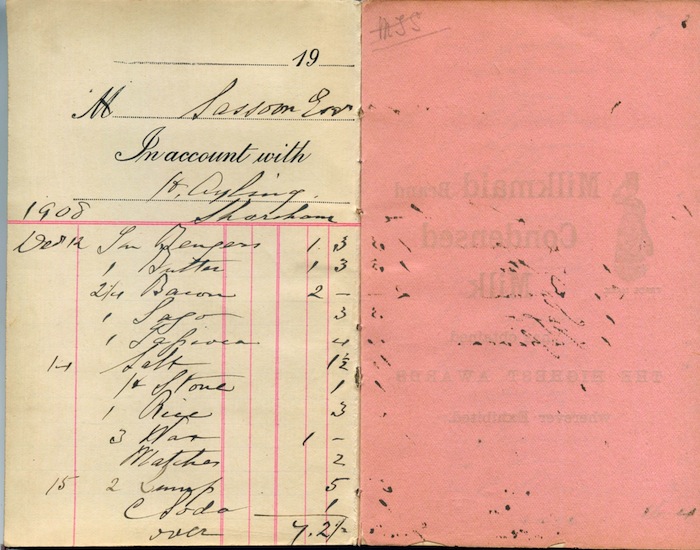 19
M Sassoon Esqr
In account with
H. Ayling
Sharham
1908
Dec 12 Tin Bengers 1. 3
1 Butter 1 3
2¼ Bacon 2 -
1 Sago 3
1 Tapioca 4
14 Salt 1½
H Stone 1
1 Rice 3
3 Wax 1 -
Matches 2
15 2 Lump 5
C Soda 1
over 7. 2½
Milkmaid Brand
Condensed
Milk
THE HIGHEST AWARDS
wherever Exhibited.